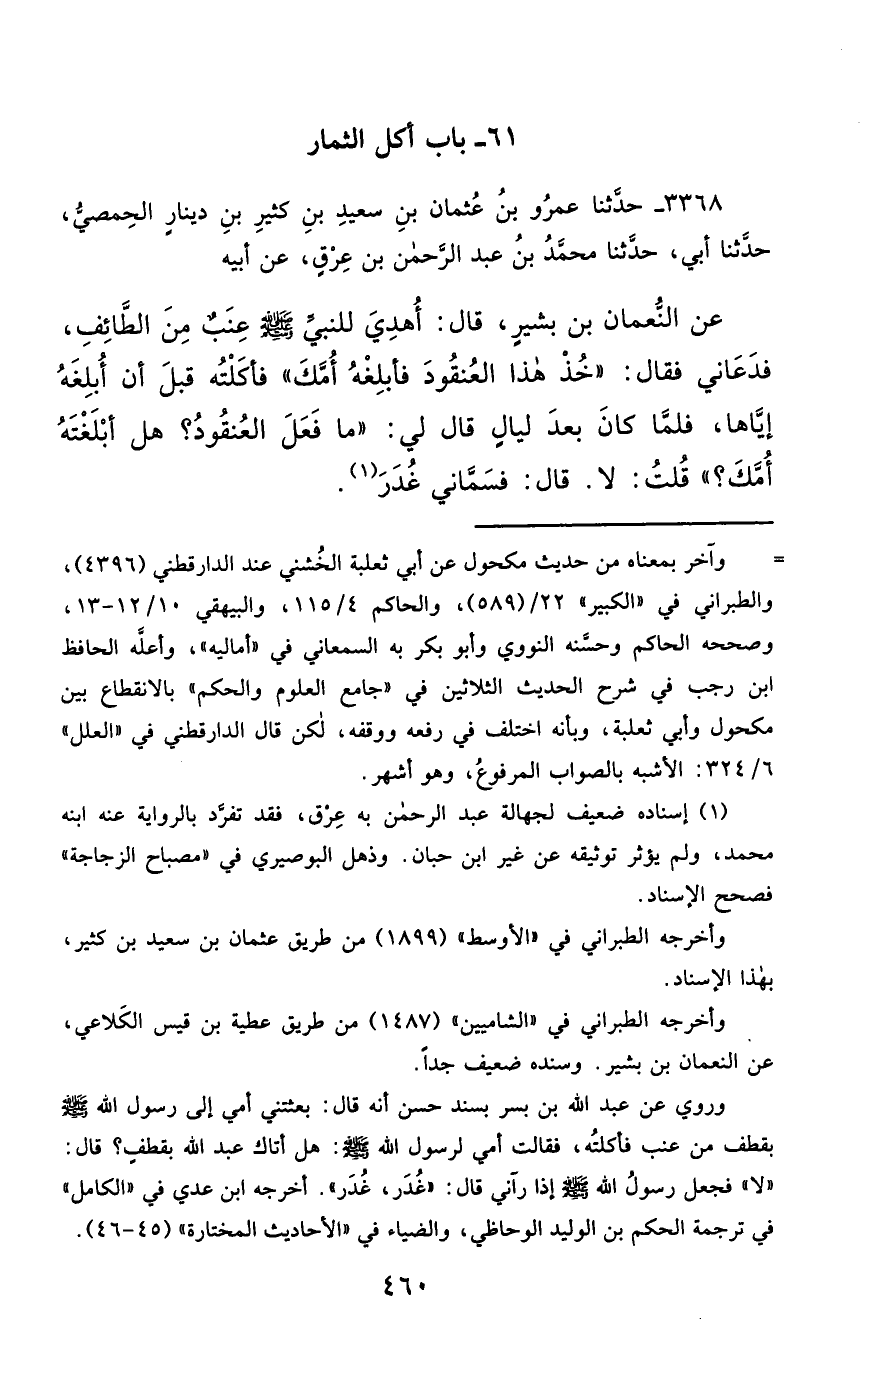 ٦١ـ باب أكل الثمار
٣٣٦٨ـ حدَّثنا عمرُو بنُ عُثمان بنِ سعيدِ بنِ كثيرِ بنِ دينارٍ الحِمصيُّ،
حدَّثنا أبي، حدَّثنا محمَّدُ بنُ عبد الرَّحمٰن بن عِرْقٍ، عن أبيه
عن النُّعمان بن بشيرٍ، قال: أُهدِيَ للنبيِّ ﷺ عِنَبٌ مِنَ الطَّائِفِ،
فدَعَاني فقال: «خُذْ هٰذا العُنقُودَ فأبلِغْهُ أُمَّكَ» فأكَلْتُه قبلَ أن أُبلِغَهُ
إيَّاها، فلمَّا كانَ بعدَ ليالٍ قال لي: «ما فَعَلَ العُنقُودُ؟ هل أبْلَغْتَهُ
أُمَّكَ؟» قُلتُ: لا. قال: فسَمَّاني غُدَرَ(١).
= وآخر بمعناه من حديث مكحول عن أبي ثعلبة الخُشني عند الدارقطني (٤٣٩٦)،
والطبراني في «الكبير» ٢٢/(٥٨٩)، والحاكم ٤/١١٥، والبيهقي ١٠/١٢-١٣،
وصححه الحاكم وحسَّنه النووي وأبو بكر به السمعاني في «أماليه»، وأعلَّه الحافظ
ابن رجب في شرح الحديث الثلاثين في «جامع العلوم والحكم» بالانقطاع بين
مكحول وأبي ثعلبة، وبأنه اختلف في رفعه ووقفه، لٰكن قال الدارقطني في «العلل»
٦/٣٢٤: الأشبه بالصواب المرفوعُ، وهو أشهر.
(١) إسناده ضعيف لجهالة عبد الرحمٰن به عِرْق، فقد تفرَّد بالرواية عنه ابنه
محمد، ولم يؤثر توثيقه عن غير ابن حبان. وذهل البوصيري في «مصباح الزجاجة»
فصحح الإسناد.
وأخرجه الطبراني في «الأوسط» (١٨٩٩) من طريق عثمان بن سعيد بن كثير،
بهٰذا الإسناد.
وأخرجه الطبراني في «الشاميين» (١٤٨٧) من طريق عطية بن قيس الكَلاعي،
عن النعمان بن بشير. وسنده ضعيف جداً.
وروي عن عبد الله بن بسر بسند حسن أنه قال: بعثتني أمي إلى رسول الله ﷺ
بقطف من عنب فأكلتُه، فقالت أمي لرسول الله ﷺ: هل أتاك عبد الله بقطفٍ؟ قال:
«لا» فجعل رسولُ الله ﷺ إذا رآني قال: «غُدَر، غُدَر». أخرجه ابن عدي في «الكامل»
في ترجمة الحكم بن الوليد الوحاظي، والضياء في «الأحاديث المختارة» (٤٥-٤٦).
٤٦٠